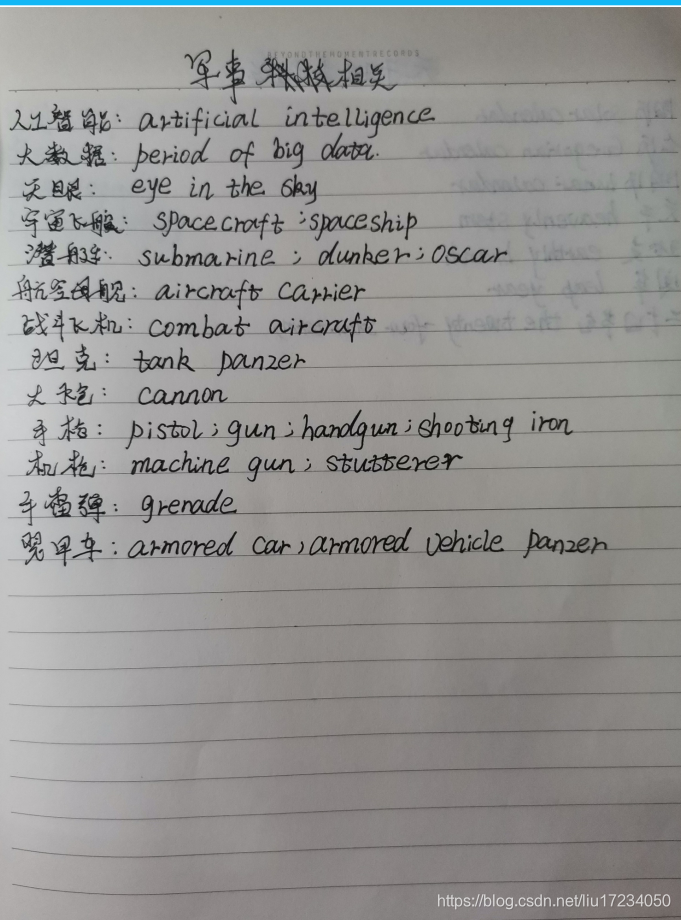 BEYONDTHEMOMENTRECORDS
军事科技相关
人工智能: artificial intelligence
大数据: period of big data.
天眼: eye in the sky
宇宙飞船: spacecraft ; spaceship
潜艇: submarine ; dunker ; oscar
航空母舰: aircraft carrier
战斗飞机: combat aircraft
坦克: tank panzer
大炮: cannon
手枪: pistol ; gun ; handgun ; shooting iron
机枪: machine gun ; stutterer
手雷弹: grenade
装甲车: armored car , armored vehicle panzer
https://blog.csdn.net/liu17234050